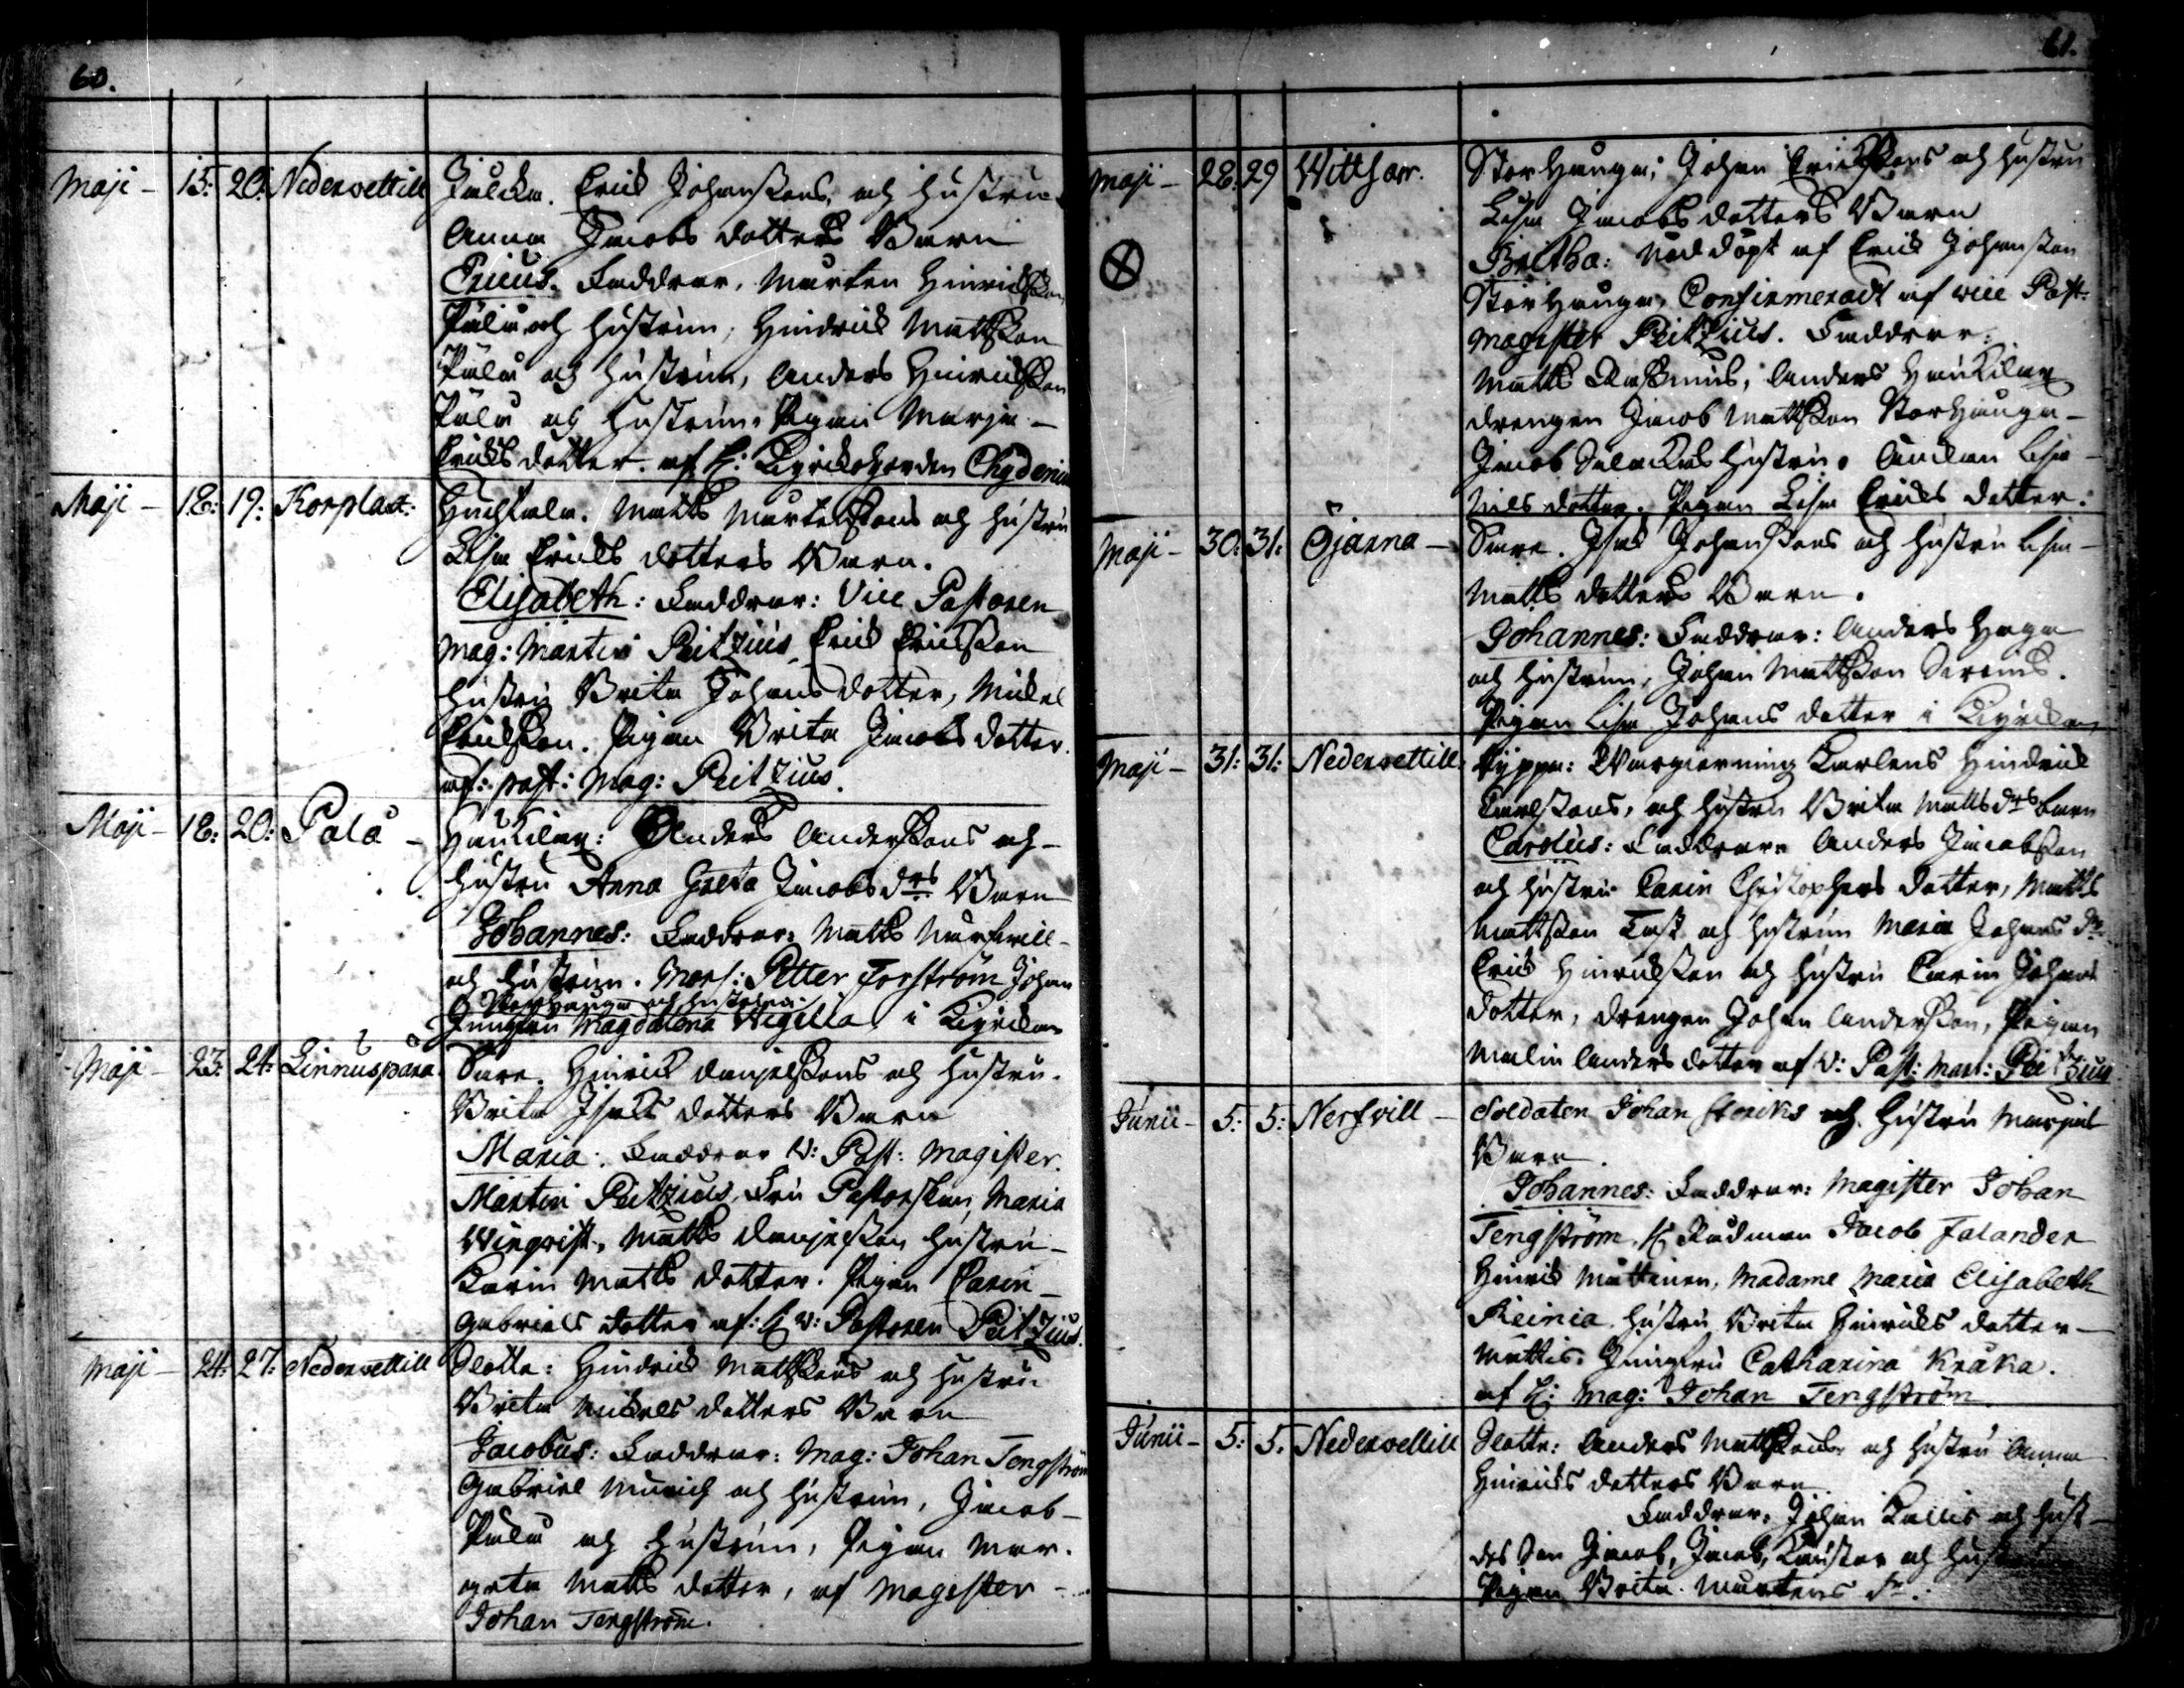 60.
Maji - 15: 20: Nedervettill Juleka. Erick Johanssons, och hustru
Anna Jacobs dotters Barn
Ericus. Faddrar, Mårten Hinricsson
Pulu och hustrun, Hindrick Mattsson
Pulu och hustrun, Anders Hinricsson
Pulu och hustrun, Pigan Marja -
Ericks dotter. af H: Kyrckoherden Chydenius
Maji - 18: 19: Korplax: Matts Mårtenssons och hustru
Lisa Ericks dotters Barn.
Elisabeth: Faddrar: Vice Pastoren
Mag: Martin Peitzius, Erick Ericsson
hustru Brita Johans dotter, Mickel
Ericsson. Pigan Brita Jacobs dotter.
af: past: Mag: Peitzius.
Maji - 18: 20: Palå - Anders Anderssons och -
hustru Anna Greta Jacobs drs Barn
Johannes: Faddrar: Matts
och hustrun. Mons: Petter Forström Johan
Storhauga och hustrun.
Jungfru Magdalena Wigilia i Kyrckan
Maji - 23: 24: Linnuspära Sare. Hinrick Danjelssons och hustru.
Brita Isacks dotters Barn
Maria. Faddrar V: Past: Magister.
Martin Peitzius, Fru Pastorskan, Maria
Winqvist, Matts Danjelsson hustru -
Karin Matts dotter. Pigan Carin -
Gabriels dotter af: H v: Pastoren Peitzius.
Maji - 24: 27: Nedervettill Slotte: Hindrick Mattssons och hustru
Brita Mickels dotters Barn
Jacobus: Faddrar: Mag: Johan Tengström
Gabriel Munich och hustrun, Jacob -
Pulu och hustrun, Pigan Mar-
greta Matts dotter, af Magister -
Johan Tengström.
61.
Maji - 28: 29 Wittsarr. Storhauga; Johan Ericssons och hustru
Lisa Jacobs dotters Barn
Britha: Nöddöpt af Erick Johansson
Storhauga, Confirmeradt af vice Past:
Magister Peitzius. Faddrar:
Matts Anders
drengen Jacob Mattsson Storhauga -
Jacob hustru. Lisa -
Nils dotter. Pigan Lisa Ericks dotter.
Maji - 30: 31: Öjanna - Sare. Isac Johanssons och hustru Lisa -
Matts dotters Barn.
Johannes: Faddrar: Anders Haga
och hustrun, Johan Mattsson
Pigan Lisa Johans dotter i Kyrckan
Maji - 31: 31: Nedervettill: Karlens Hindrick
Carlssons, och hustru Brita Matts drs barn
Carolus: Faddrar Anders Jacobsson
och hustru Carin Christophers dotter, Matts
Mattsson Tast och hustrun Maria Johans dr
Erick Hinricksson och hustru Carin Johans
dotter, drengen Johan Andersson, Pigan
Malin Anders dotter af V: Past: Mart: Peitzius
Junii - 5: 5: Nerfvill - Soldaten Johan och hustru Marjas
Barn.
Johannes: Faddrar: Magister Johan
Tengström, H Rådman Jacob Falander
Hinrick Muttinen, Madame Maria Elisabeth
Reinia. hustru Brita Hinricks dotter -
Muttis. Jungfru Catharina Kråka.
af H: Mag: Johan Tengström
Junii - 5: 5. Nedervettill Slotte: Anders Mattssons och hustru Anna
Hinricks dotters Barn
Faddrar: Johan Kallis och hust-
des Son Jacob, Jacob, och
Pigan Brita Mårtens dr: